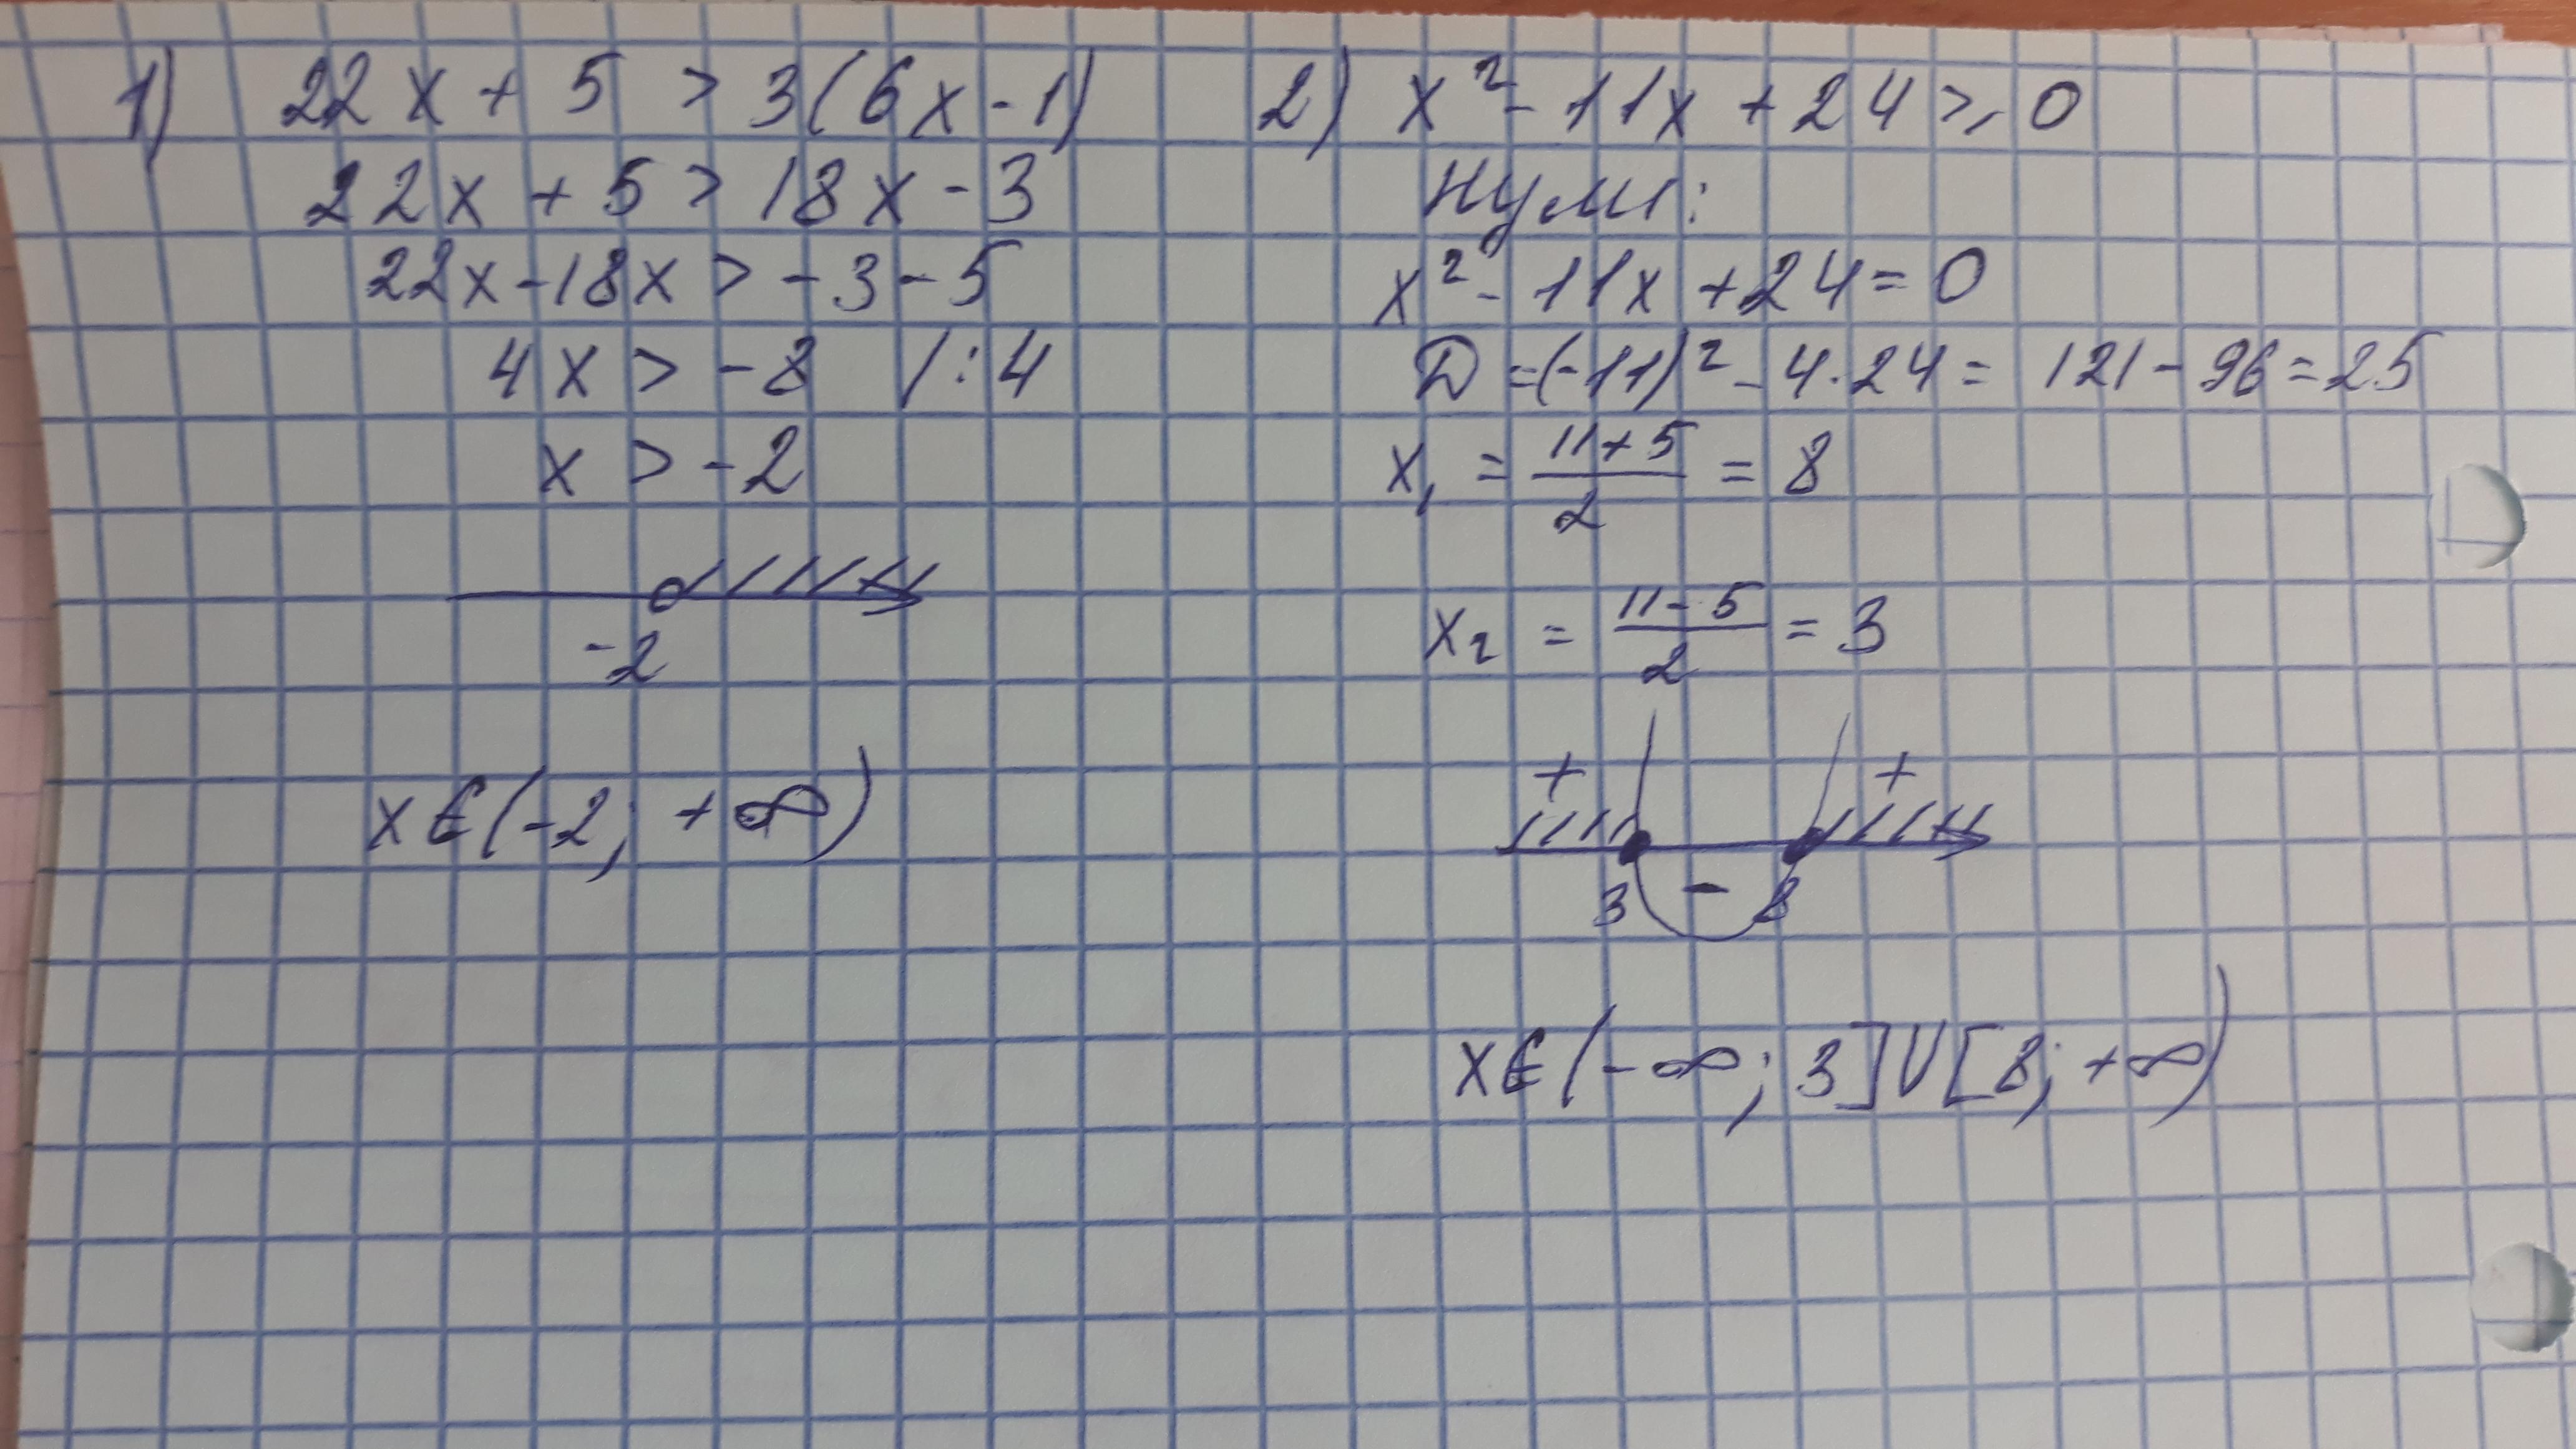 1) 22x + 5 > 3(6x - 1)
22x + 5 > 18x - 3
22x - 18x > -3 - 5
4x > -8 /:4
x > -2
-2
x ∈ (-2; +∞)
2) x² - 11x + 24 ≥ 0
Нулі:
x² - 11x + 24 = 0
D = (-11)² - 4·24 = 121 - 96 = 25
x₁ = (11+5)/2 = 8
x₂ = (11-5)/2 = 3
+ +
3 - 8
x ∈ (-∞; 3] ∪ [8; +∞)